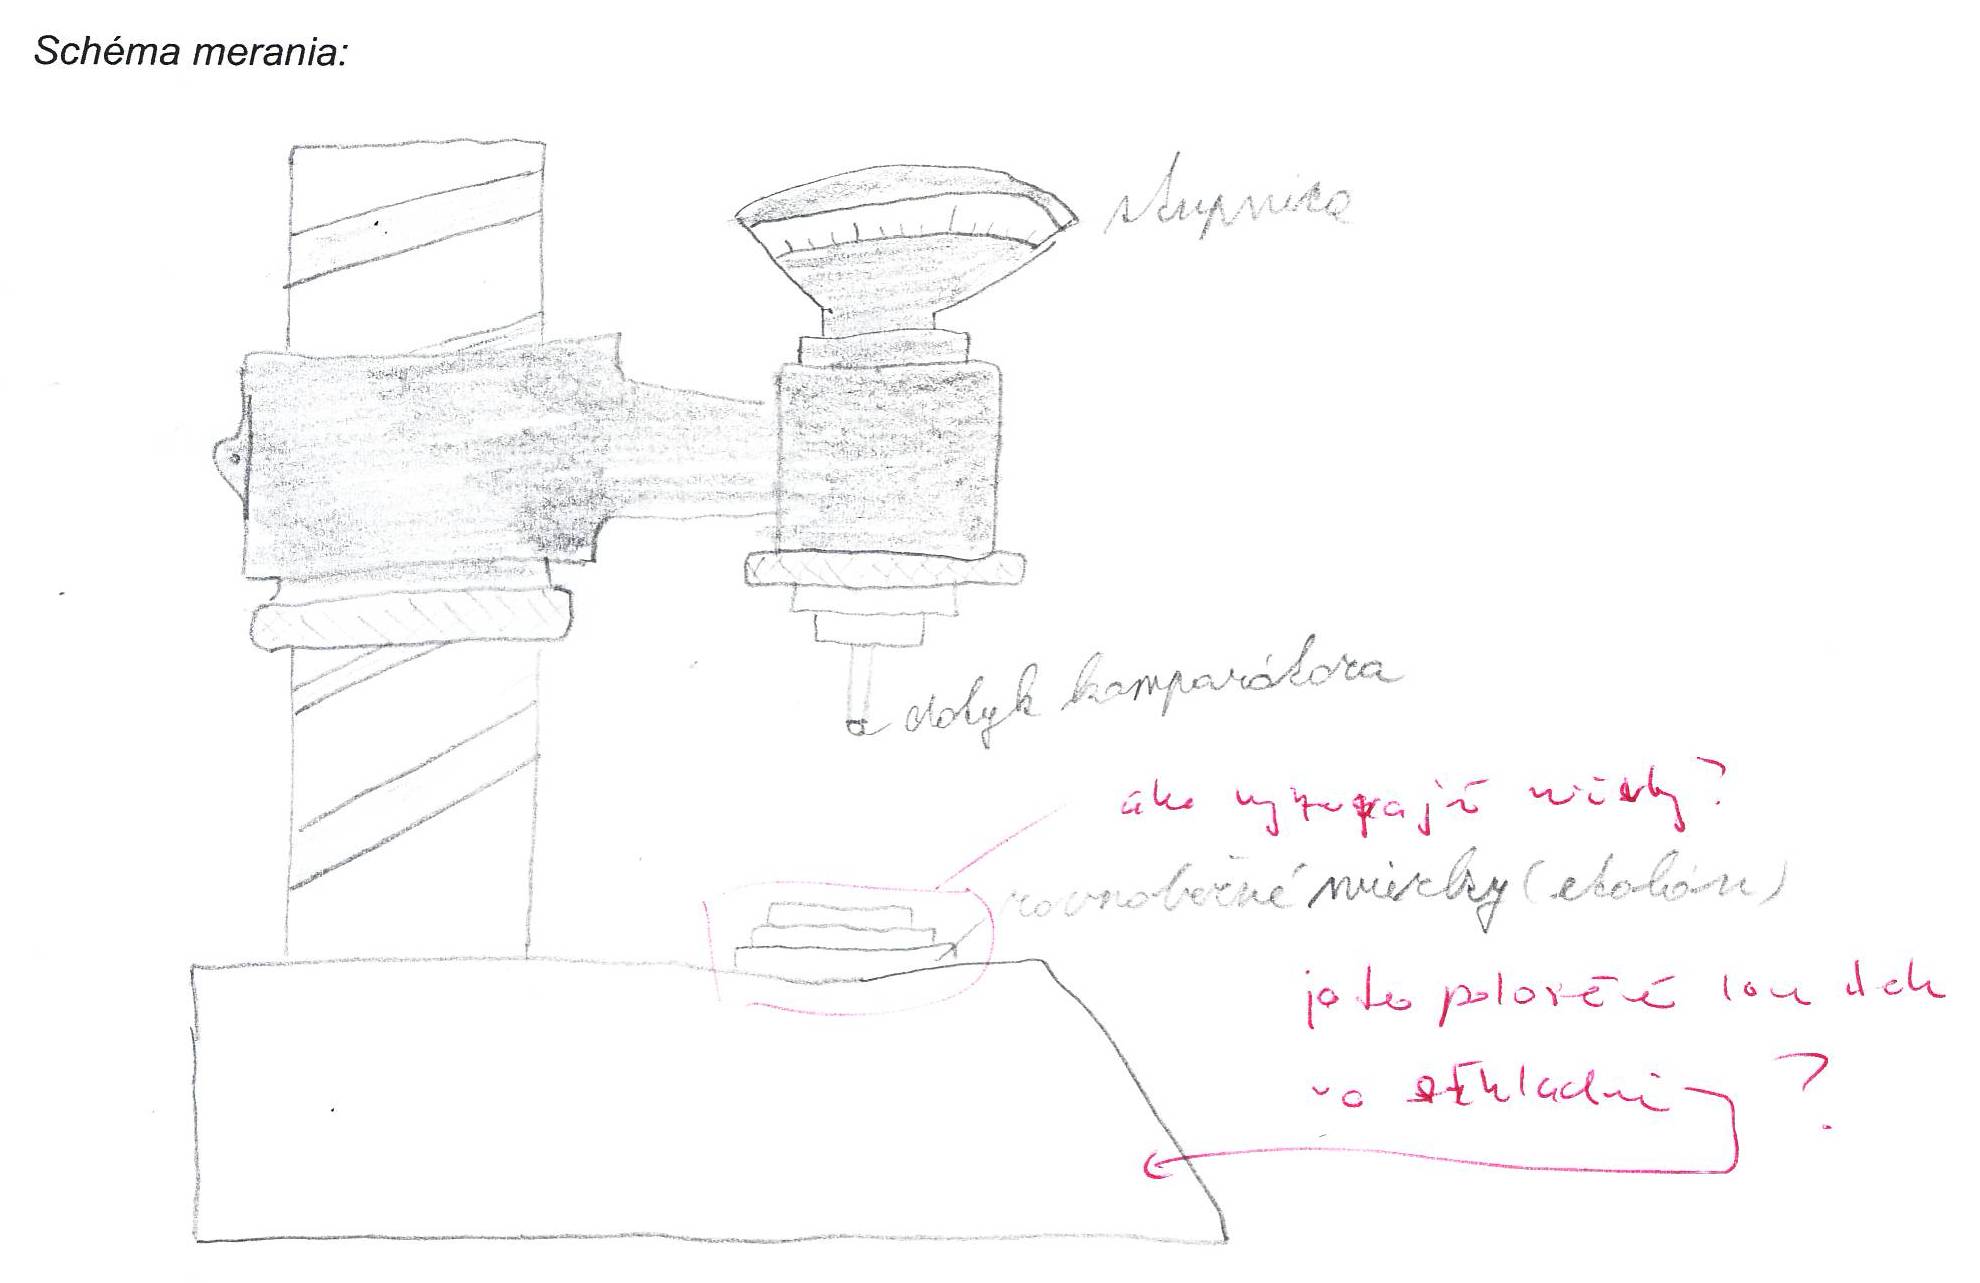 Schéma merania:
stupnica
dotyk komparátora
ako vyzerajú mierky?
rovnobežné mierky (etalón)
je to položené len tak
na základni ?